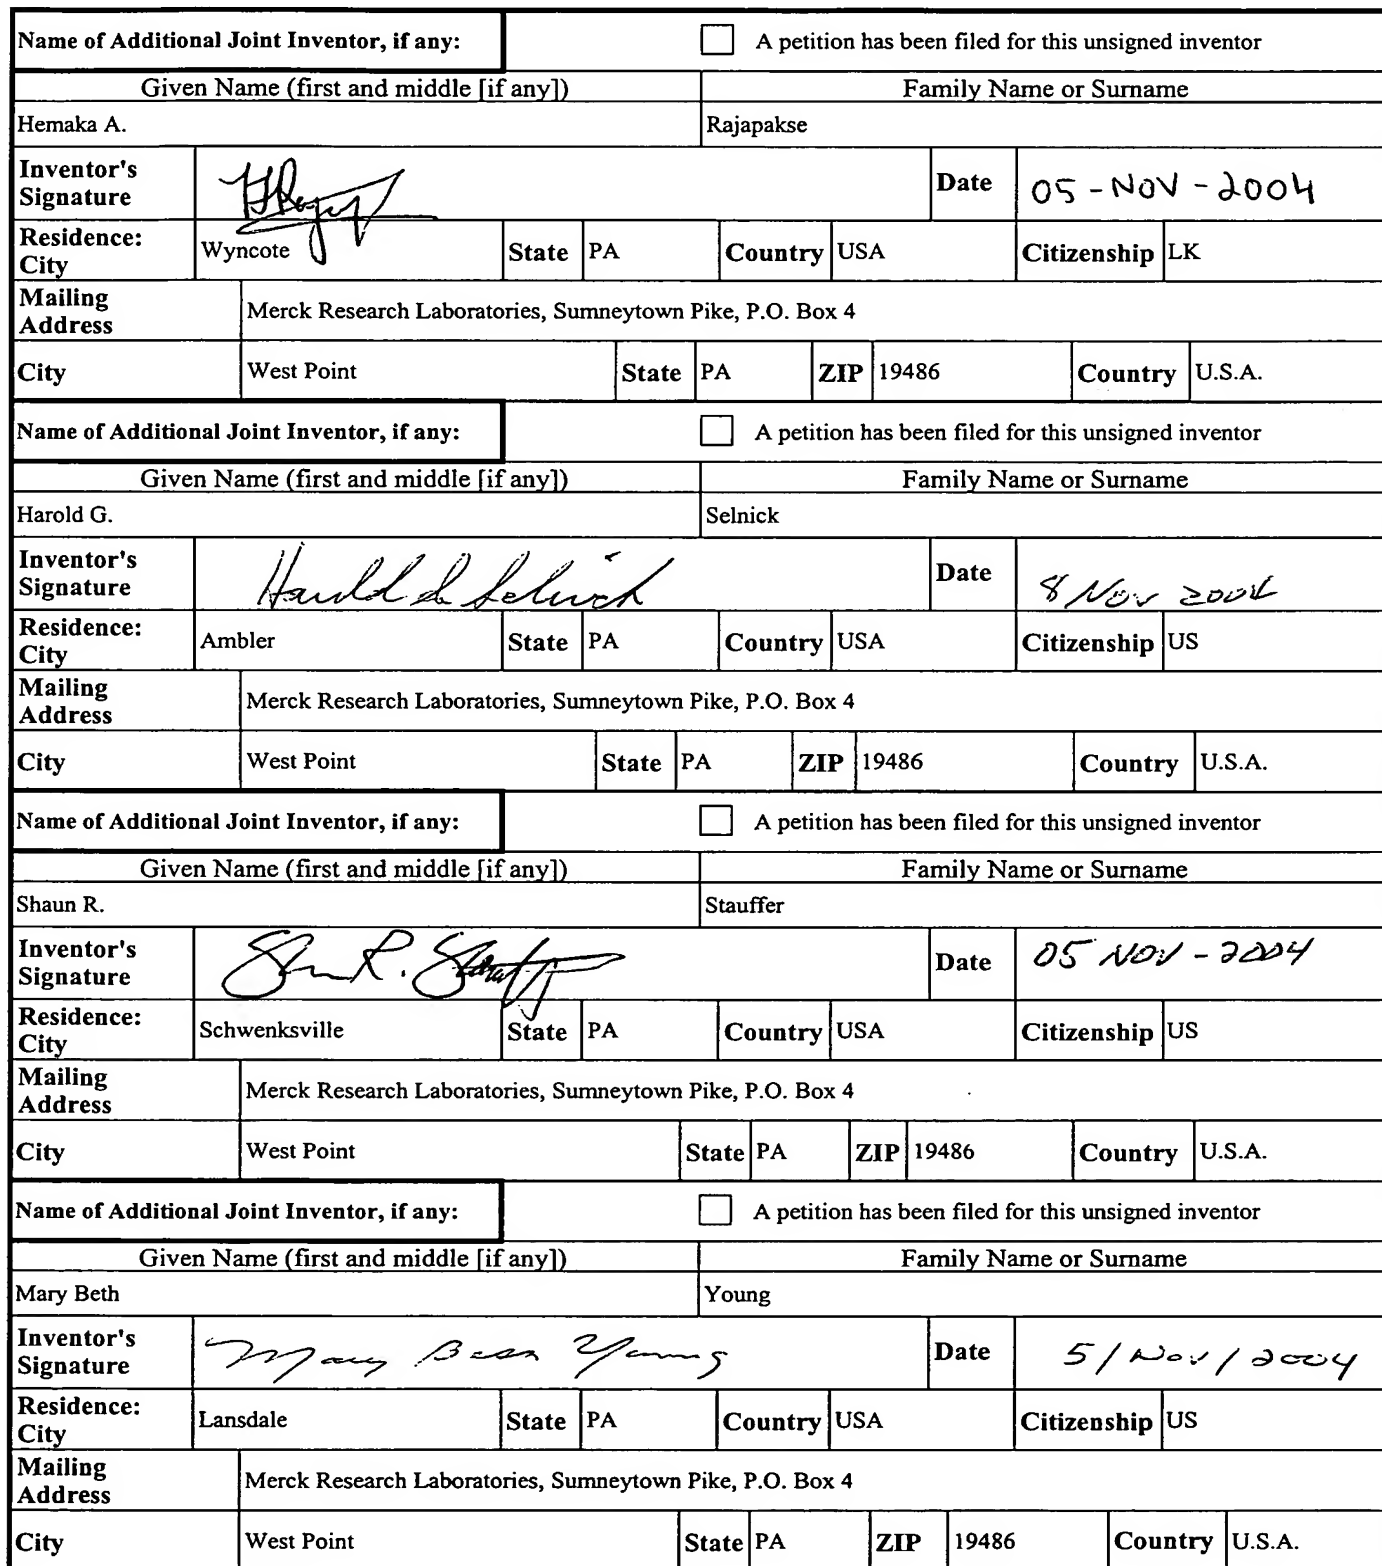 Name of Additional Joint Inventor, if any: A petition has been filed for this unsigned inventor
Given Name (first and middle [if any]) Family Name or Surname
Hemaka A. Rajapakse
Inventor's Signature Date 05-NOV-2004
Residence: City Wyncote State PA Country USA Citizenship LK
Mailing Address Merck Research Laboratories, Sumneytown Pike, P.O. Box 4
City West Point State PA ZIP 19486 Country U.S.A.
Name of Additional Joint Inventor, if any: A petition has been filed for this unsigned inventor
Given Name (first and middle [if any]) Family Name or Surname
Harold G. Selnick
Inventor's Signature Harold G Selnick Date 8 Nov 2004
Residence: City Ambler State PA Country USA Citizenship US
Mailing Address Merck Research Laboratories, Sumneytown Pike, P.O. Box 4
City West Point State PA ZIP 19486 Country U.S.A.
Name of Additional Joint Inventor, if any: A petition has been filed for this unsigned inventor
Given Name (first and middle [if any]) Family Name or Surname
Shaun R. Stauffer
Inventor's Signature Shaun R. Stauffer Date 05 NOV-2004
Residence: City Schwenksville State PA Country USA Citizenship US
Mailing Address Merck Research Laboratories, Sumneytown Pike, P.O. Box 4
City West Point State PA ZIP 19486 Country U.S.A.
Name of Additional Joint Inventor, if any: A petition has been filed for this unsigned inventor
Given Name (first and middle [if any]) Family Name or Surname
Mary Beth Young
Inventor's Signature Mary Beth Young Date 5/Nov/2004
Residence: City Lansdale State PA Country USA Citizenship US
Mailing Address Merck Research Laboratories, Sumneytown Pike, P.O. Box 4
City West Point State PA ZIP 19486 Country U.S.A.